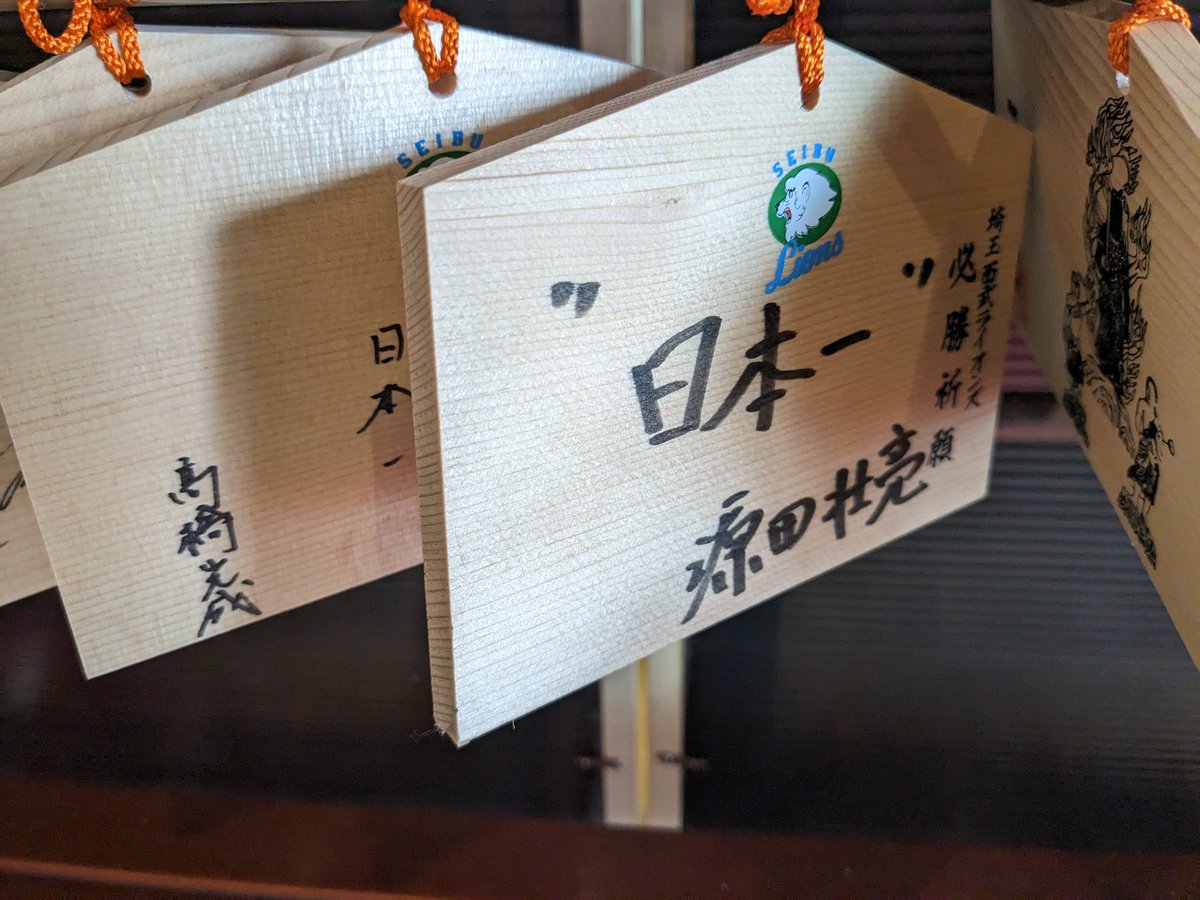 SEIBU
Lions
埼玉西武ライオンズ
必勝祈願
〃日本一〃
源田壮亮
SEIBU
日本一
高橋光成